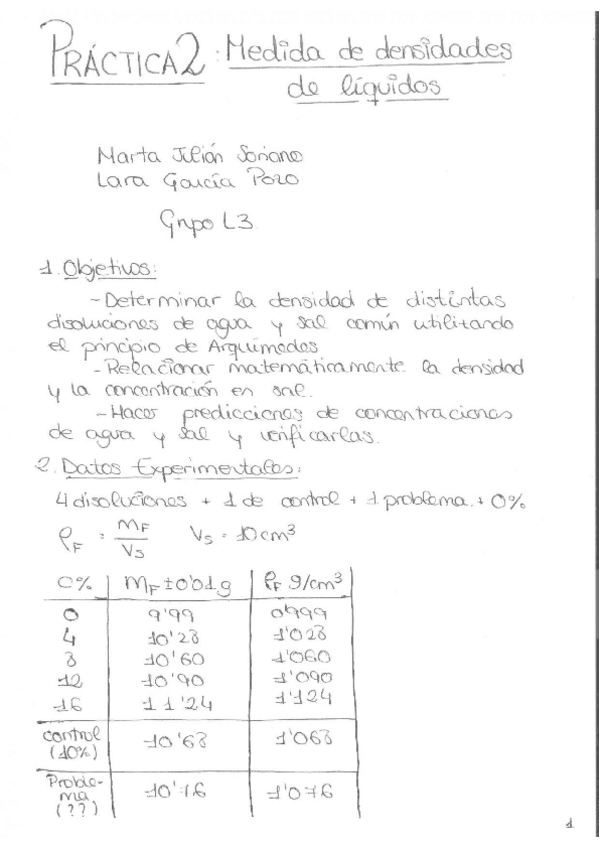 PRÁCTICA 2: Medida de densidades
de líquidos
Marta Julián Soriano
Lara García Pozo
Grupo L3
1. Objetivos:
- Determinar la densidad de distintas
disoluciones de agua y sal común utilizando
el principio de Arquímedes
- Relacionar matemáticamente la densidad
y la concentración en sal.
- Hacer predicciones de concentraciones
de agua y sal y verificarlas.
2. Datos Experimentales:
4 disoluciones + 1 de control + 1 problema + 0%
ρF = MF / Vs Vs = 10 cm³
C% MF ± 0'01g ρF g/cm³
0 9'99 0'999
4 10'28 1'028
8 10'60 1'060
12 10'90 1'090
16 11'24 1'124
control (10%) 10'68 1'068
Problema (??) 10'76 1'076
1